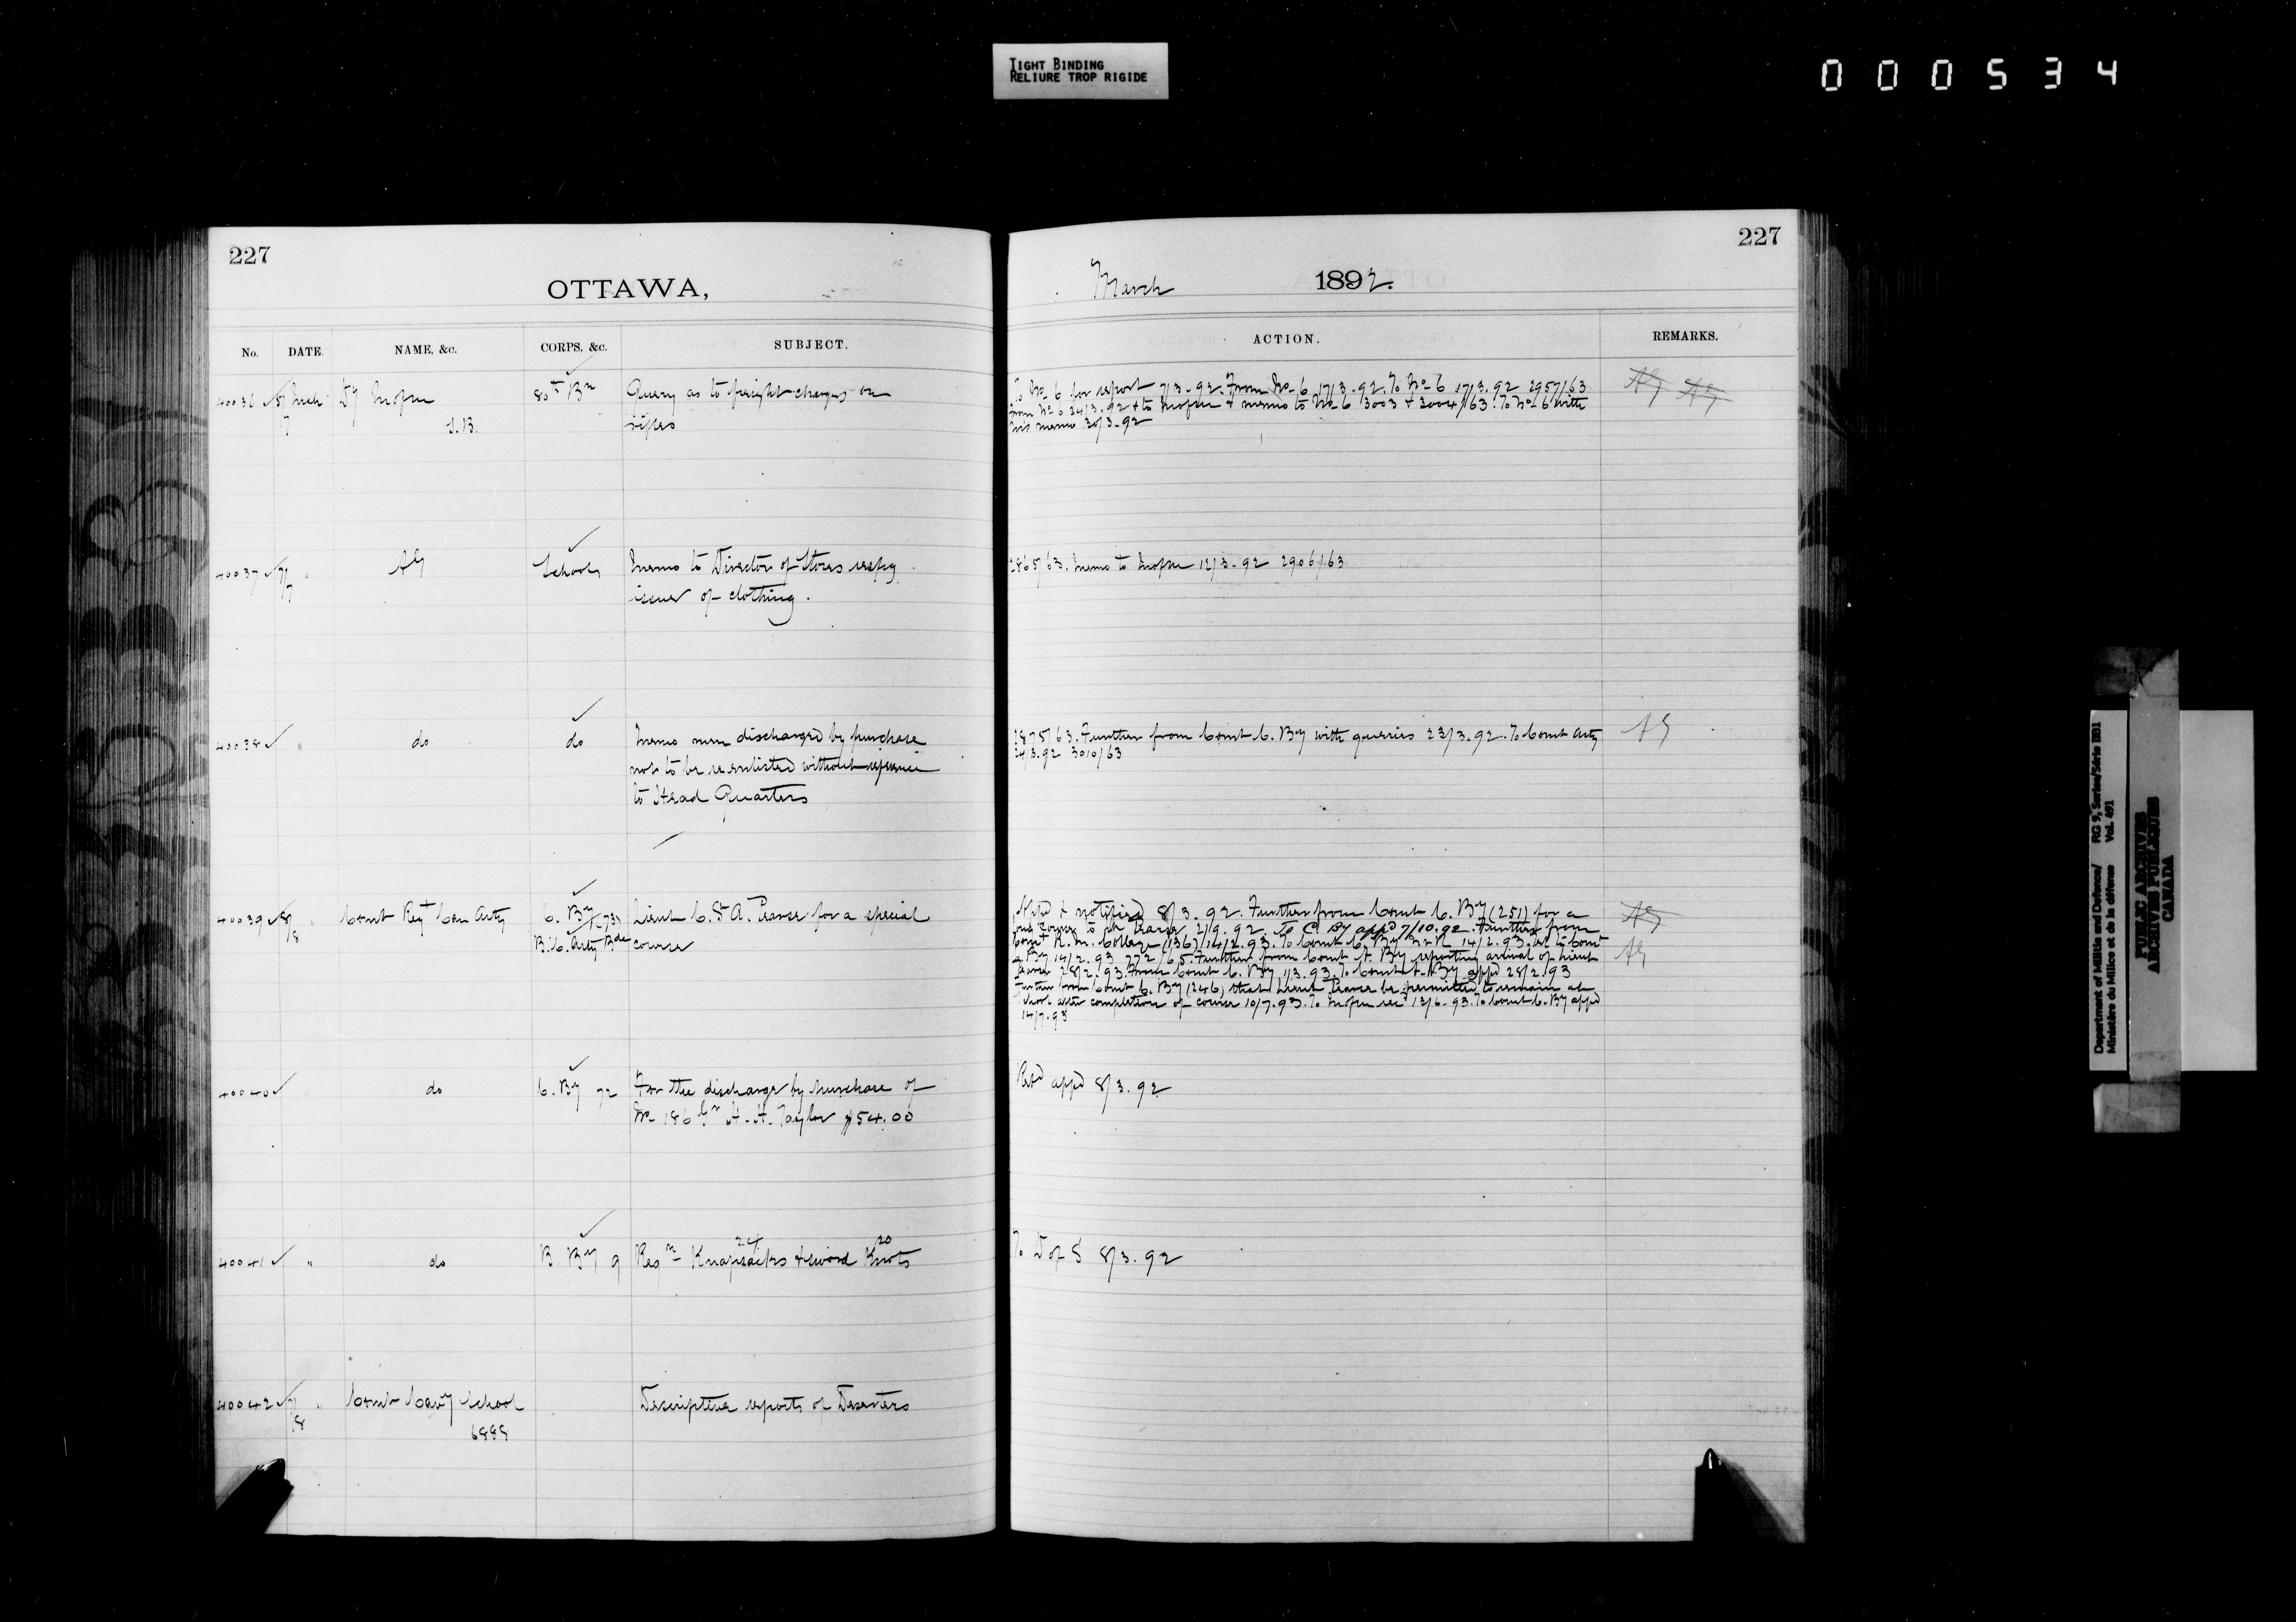 TIGHT BINDING
RELIURE TROP RIGIDE
000534
227
OTTAWA,
No. DATE. NAME, &c. CORPS, &c. SUBJECT.
40036 5/7 Mch Dy 80th Bn Query as to freight charges on
S.B. rifles
40037 7/7 " AG Schools Memo to Director of Stores respg
issues of clothing.
40038 " do do Memo men discharged by purchase
not to be re enlisted without reference
to Head Quarters
40039 8/8 " Comt Regt Can Arty C. By (73) Lieut C. St A. Pearse for a special
B.C. Arty Bde course
40040 do C. By 72 For the discharge by purchase of
No 186 Gr A. H. Taylor $54.00
40041 " do B By 9 Reqn 24 Knapsacks & sword 20 Knots
40042 7/8 " Comt Cavy School Descriptive reports of Deserters
6888
227
March 1892.
ACTION. REMARKS.
To No 6 for report 7/3.92. From No 6 17/3.92. To No 6 17/3.92 2957/63 AG AG
from No 6 24/3.92 & to & memo to No 6 3003 & 3004/63. To No 6 with
his memo 30/3.92
2865/63. Memo to 12/3.92 2906/63
2875/63. Further from Comt C. By with queries 23/3.92. To Comt Arty AG
24/3.92 3010/63
Appd & notified 8/3.92. Further from Comt C. By (251) for a AG
Course to Pearse 2/9.92. To C. By appd 7/10.92. Further from
Comt R. M. College (136) 14/2.93. To Comt C. By 14/2.93. to Comt AG
A By 14/2.93 772/65. Further from Comt A. By reporting arrival of Lieut
Pearse 28/2.93. From Comt C. By 1/3.93. To Comt A. By appd 28/2.93
Further from Comt C. By (246) that Lieut Pearse be permitted to remain at
School after completion of course 10/7.93. To 13/6.93. To Comt C. By appd
14/7.93
Retd appd 8/3.92
To D of S 8/3.92
Department of Militia and Defence/ RG 9, Series/Série IIB1
Ministère du Milice et de la défense Vol. 491
PUBLIC ARCHIVES
ARCHIVES PUBLIQUES
CANADA